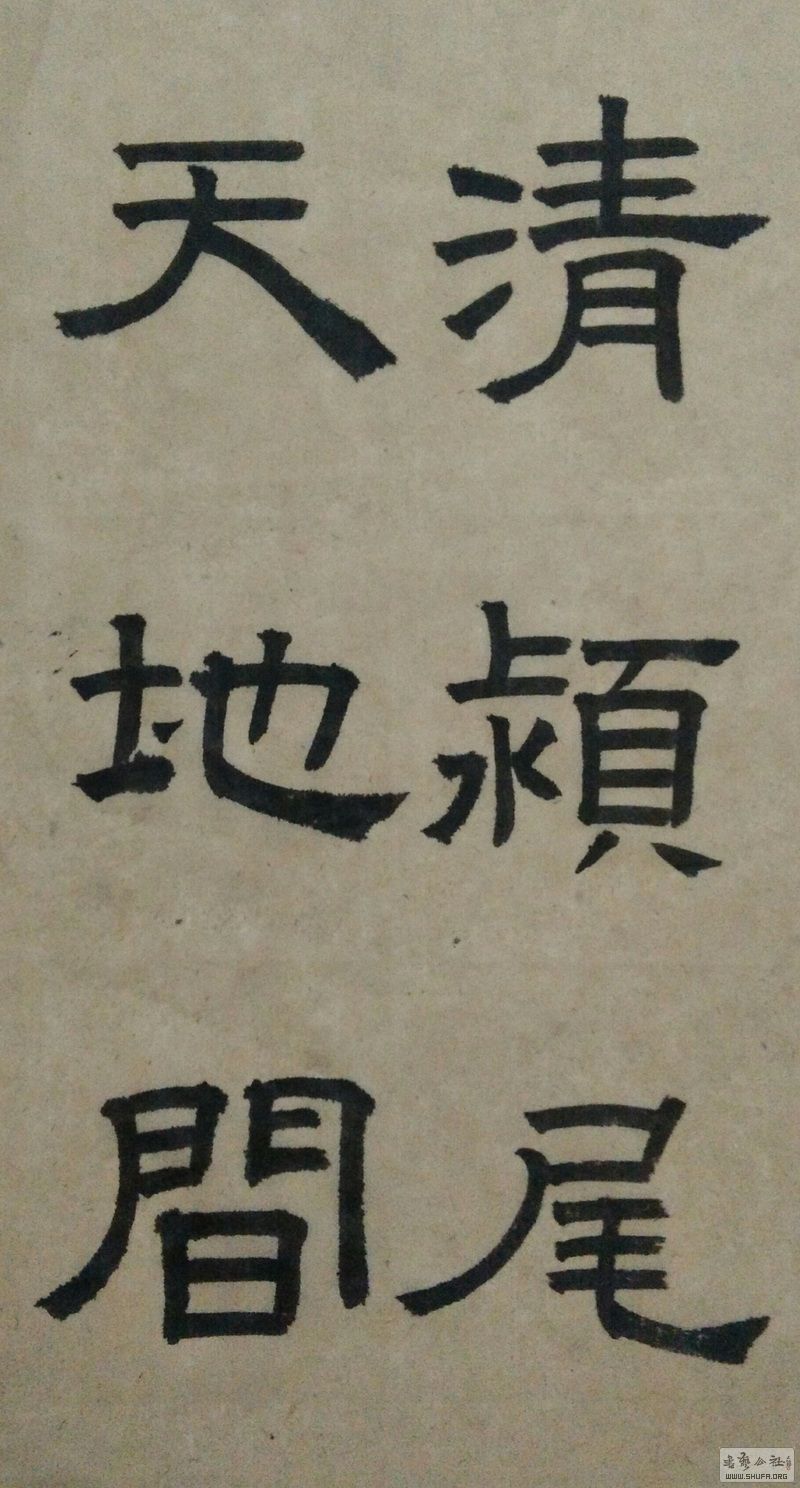 清潁尾
天地間
書藝公社
WWW.SHUFA.ORG